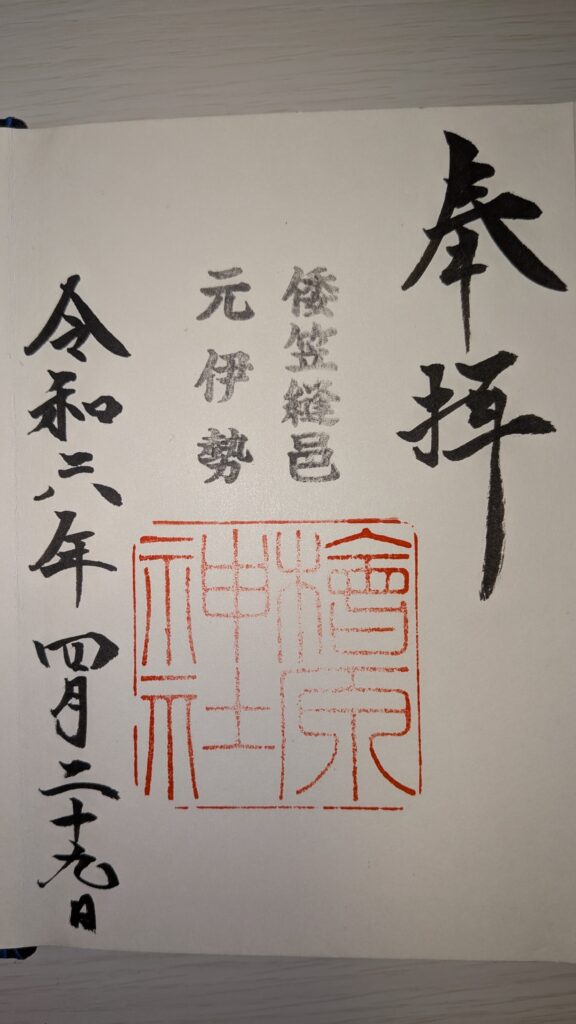 奉拝
倭笠縫邑
元伊勢
檜原
神社
令和六年四月二十九日